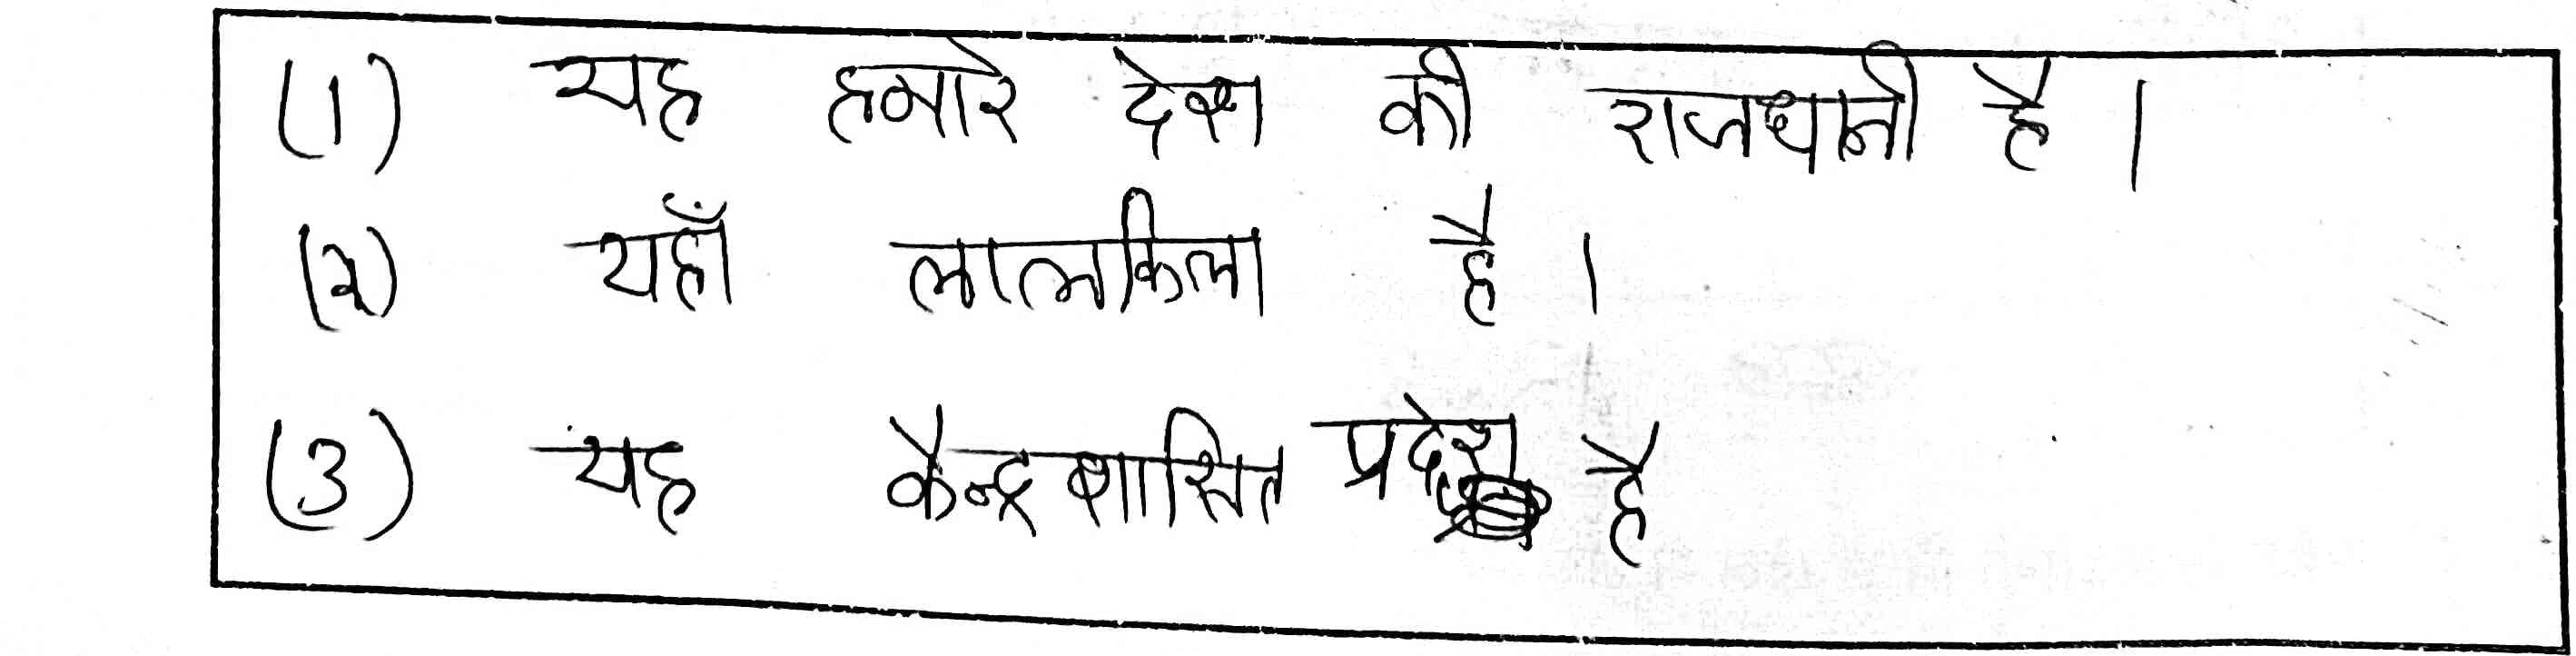 (1) यह हमारे देश की राजधानी है ।
(२) यहाँ लालकिला है ।
(3) यह कैन्द्र शासित प्रदेश है